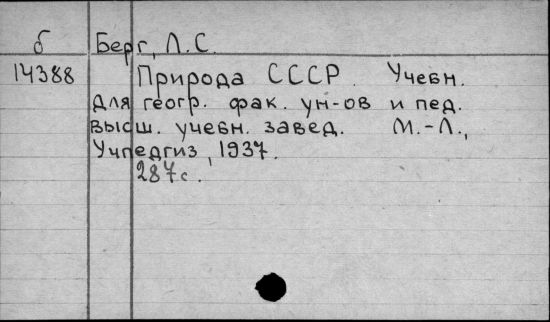 б Берг, Л.С.
14388 Природа СССР. Учебн.
для геогр. фак. ун-ов и пед.
высш. учебн. завед. М.-Л.,
Учпедгиз, 1937.
287с.